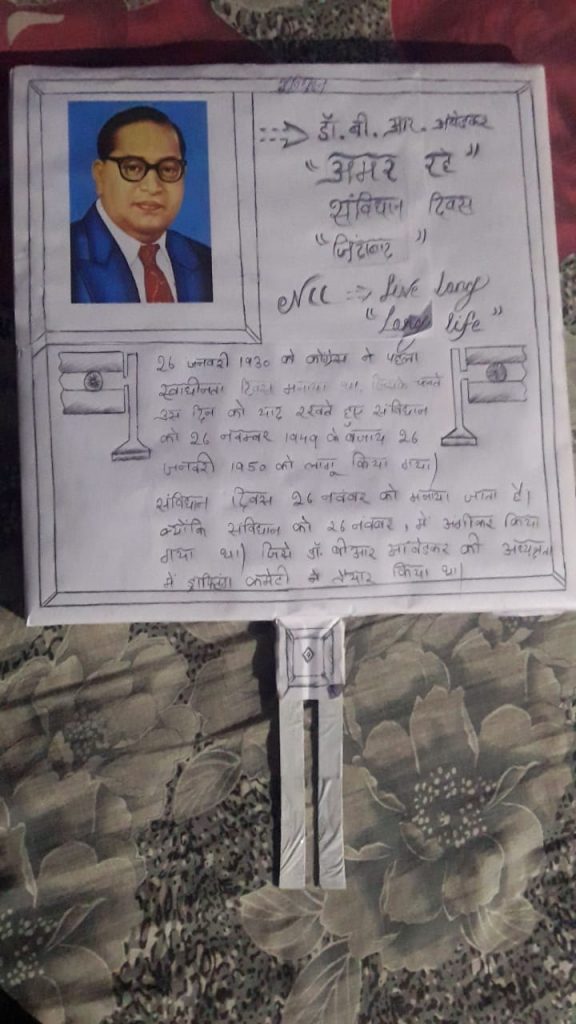 डॉ. बी. आर. अंबेडकर
"अमर रहे"
संविधान दिवस
"जिंदाबाद"
NCC ⇒ Live long
"Long life"
26 जनवरी 1930 को कांग्रेस ने पहला
स्वाधीनता दिवस मनाया था, जिसके चलते
उस दिन को याद रखते हुए संविधान
को 26 नवम्बर 1949 के बजाय 26
जनवरी 1950 को लागू किया गया।
संविधान दिवस 26 नवंबर को मनाया जाता है।
क्योंकि संविधान को 26 नवंबर, में अंगीकार किया
गया था। जिसे डॉ. बी आर आंबेडकर की अध्यक्षता
में ड्राफ्टिंग कमेटी ने तैयार किया था।